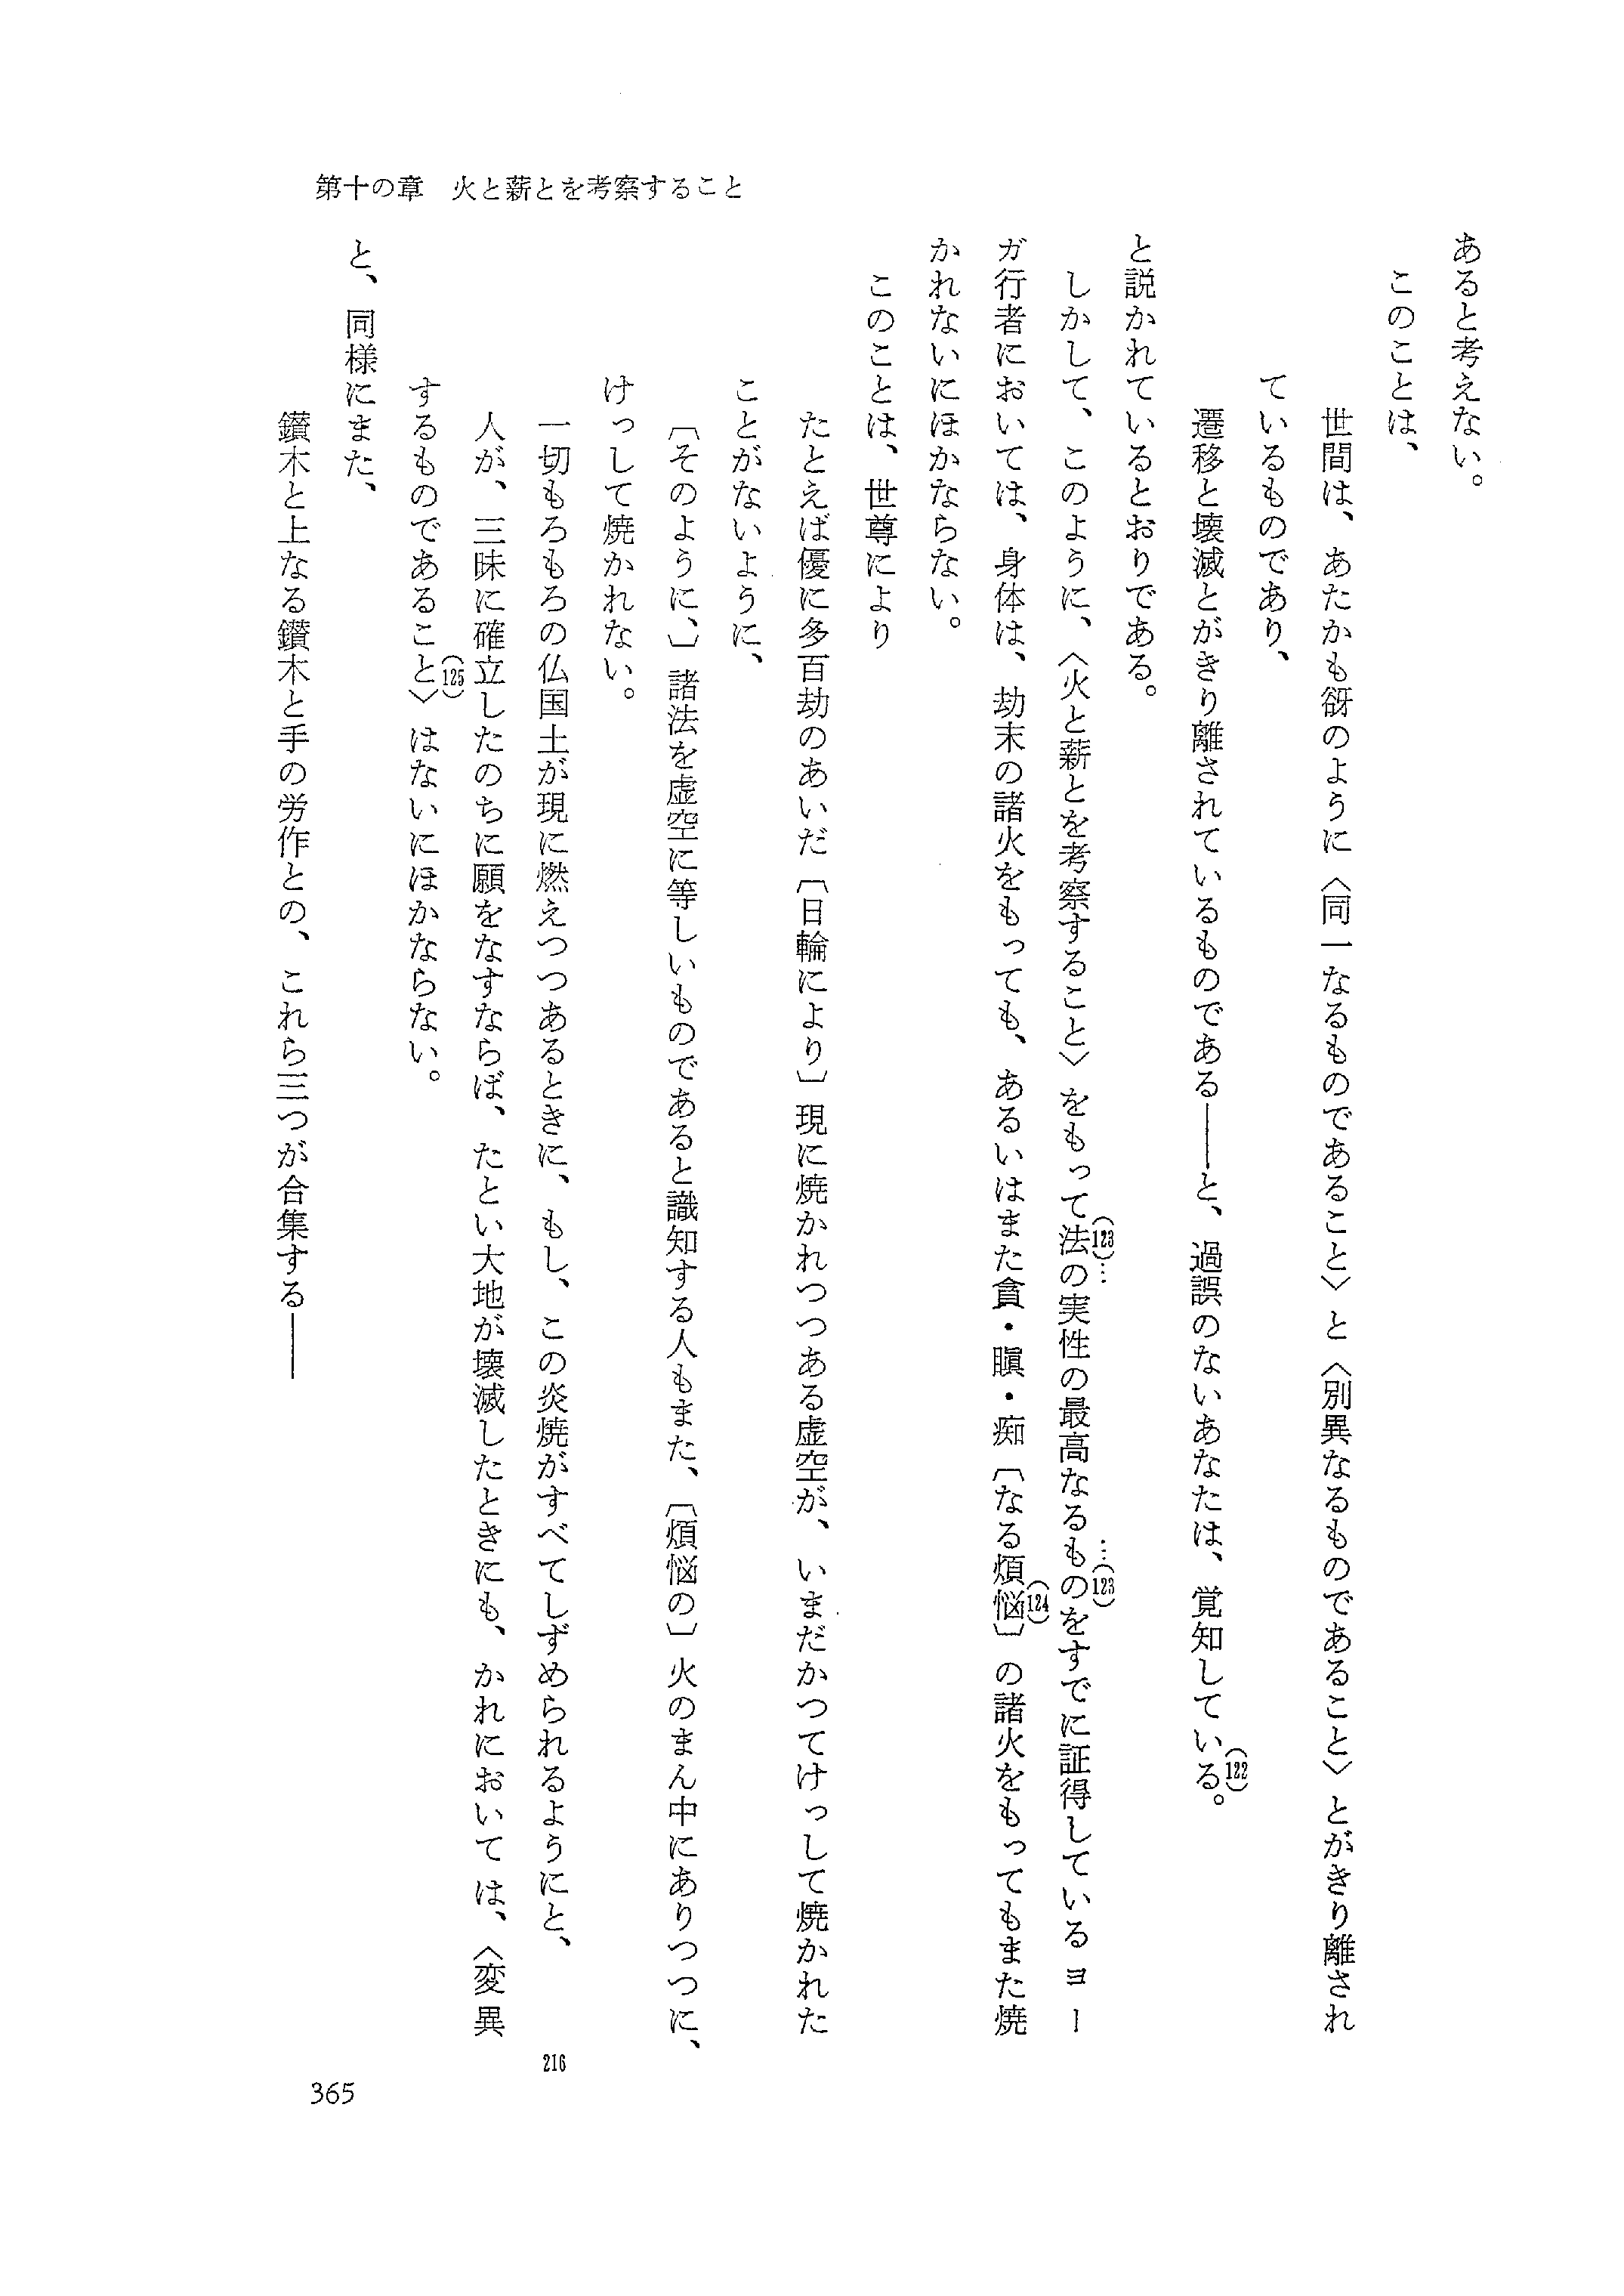 第十の章　火と薪とを考察すること
あると考えない。
このことは、
世間は、あたかも谺のように〈同一なるものであること〉と〈別異なるものであること〉とがきり離され
ているものであり、
遷移と壊滅とがきり離されているものである――と、過誤のないあなたは、覚知している。(122)
と説かれているとおりである。
しかして、このように、〈火と薪とを考察すること〉をもって(123)…法の実性の最高なるもの…(123)をすでに証得しているヨー
ガ行者においては、身体は、劫末の諸火をもっても、あるいはまた貪・瞋・痴〔なる煩悩(124)〕の諸火をもってもまた焼
かれないにほかならない。
このことは、世尊により
たとえば優に多百劫のあいだ〔日輪により〕現に焼かれつつある虚空が、いまだかつてけっして焼かれた
ことがないように、
〔そのように、〕諸法を虚空に等しいものであると識知する人もまた、〔煩悩の〕火のまん中にありつつに、
けっして焼かれない。
一切もろもろの仏国土が現に燃えつつあるときに、もし、この炎焼がすべてしずめられるようにと、
216
人が、三昧に確立したのちに願をなすならば、たとい大地が壊滅したときにも、かれにおいては、〈変異
するものであること(125)〉はないにほかならない。
と、同様にまた、
鑽木と上なる鑽木と手の労作との、これら三つが合集する――
365